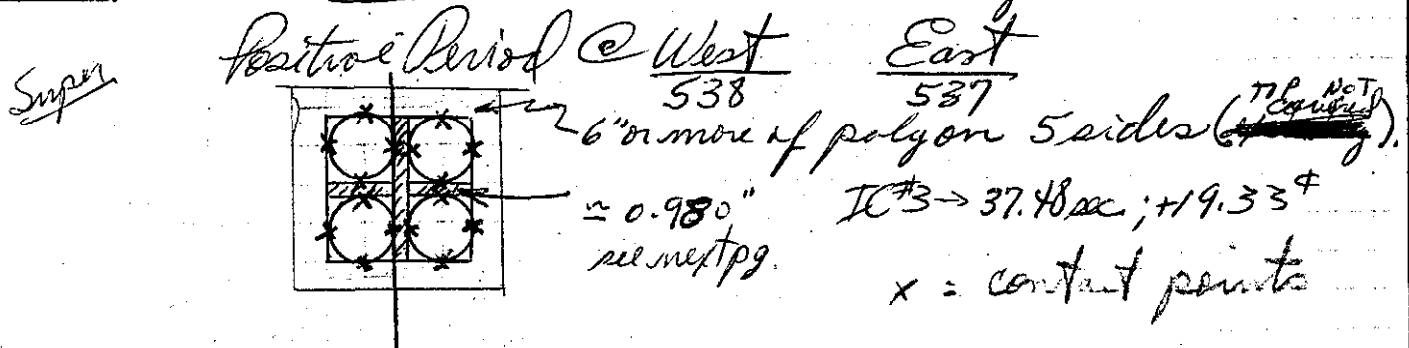 Super
Positive Period @ West East
538 537
6" or more of polyon 5 sides (
TOP NOT
covered
).
≃ 0.980"
see next pg.
IC#3→ 37.48 sec; +19.33¢
x = contact points